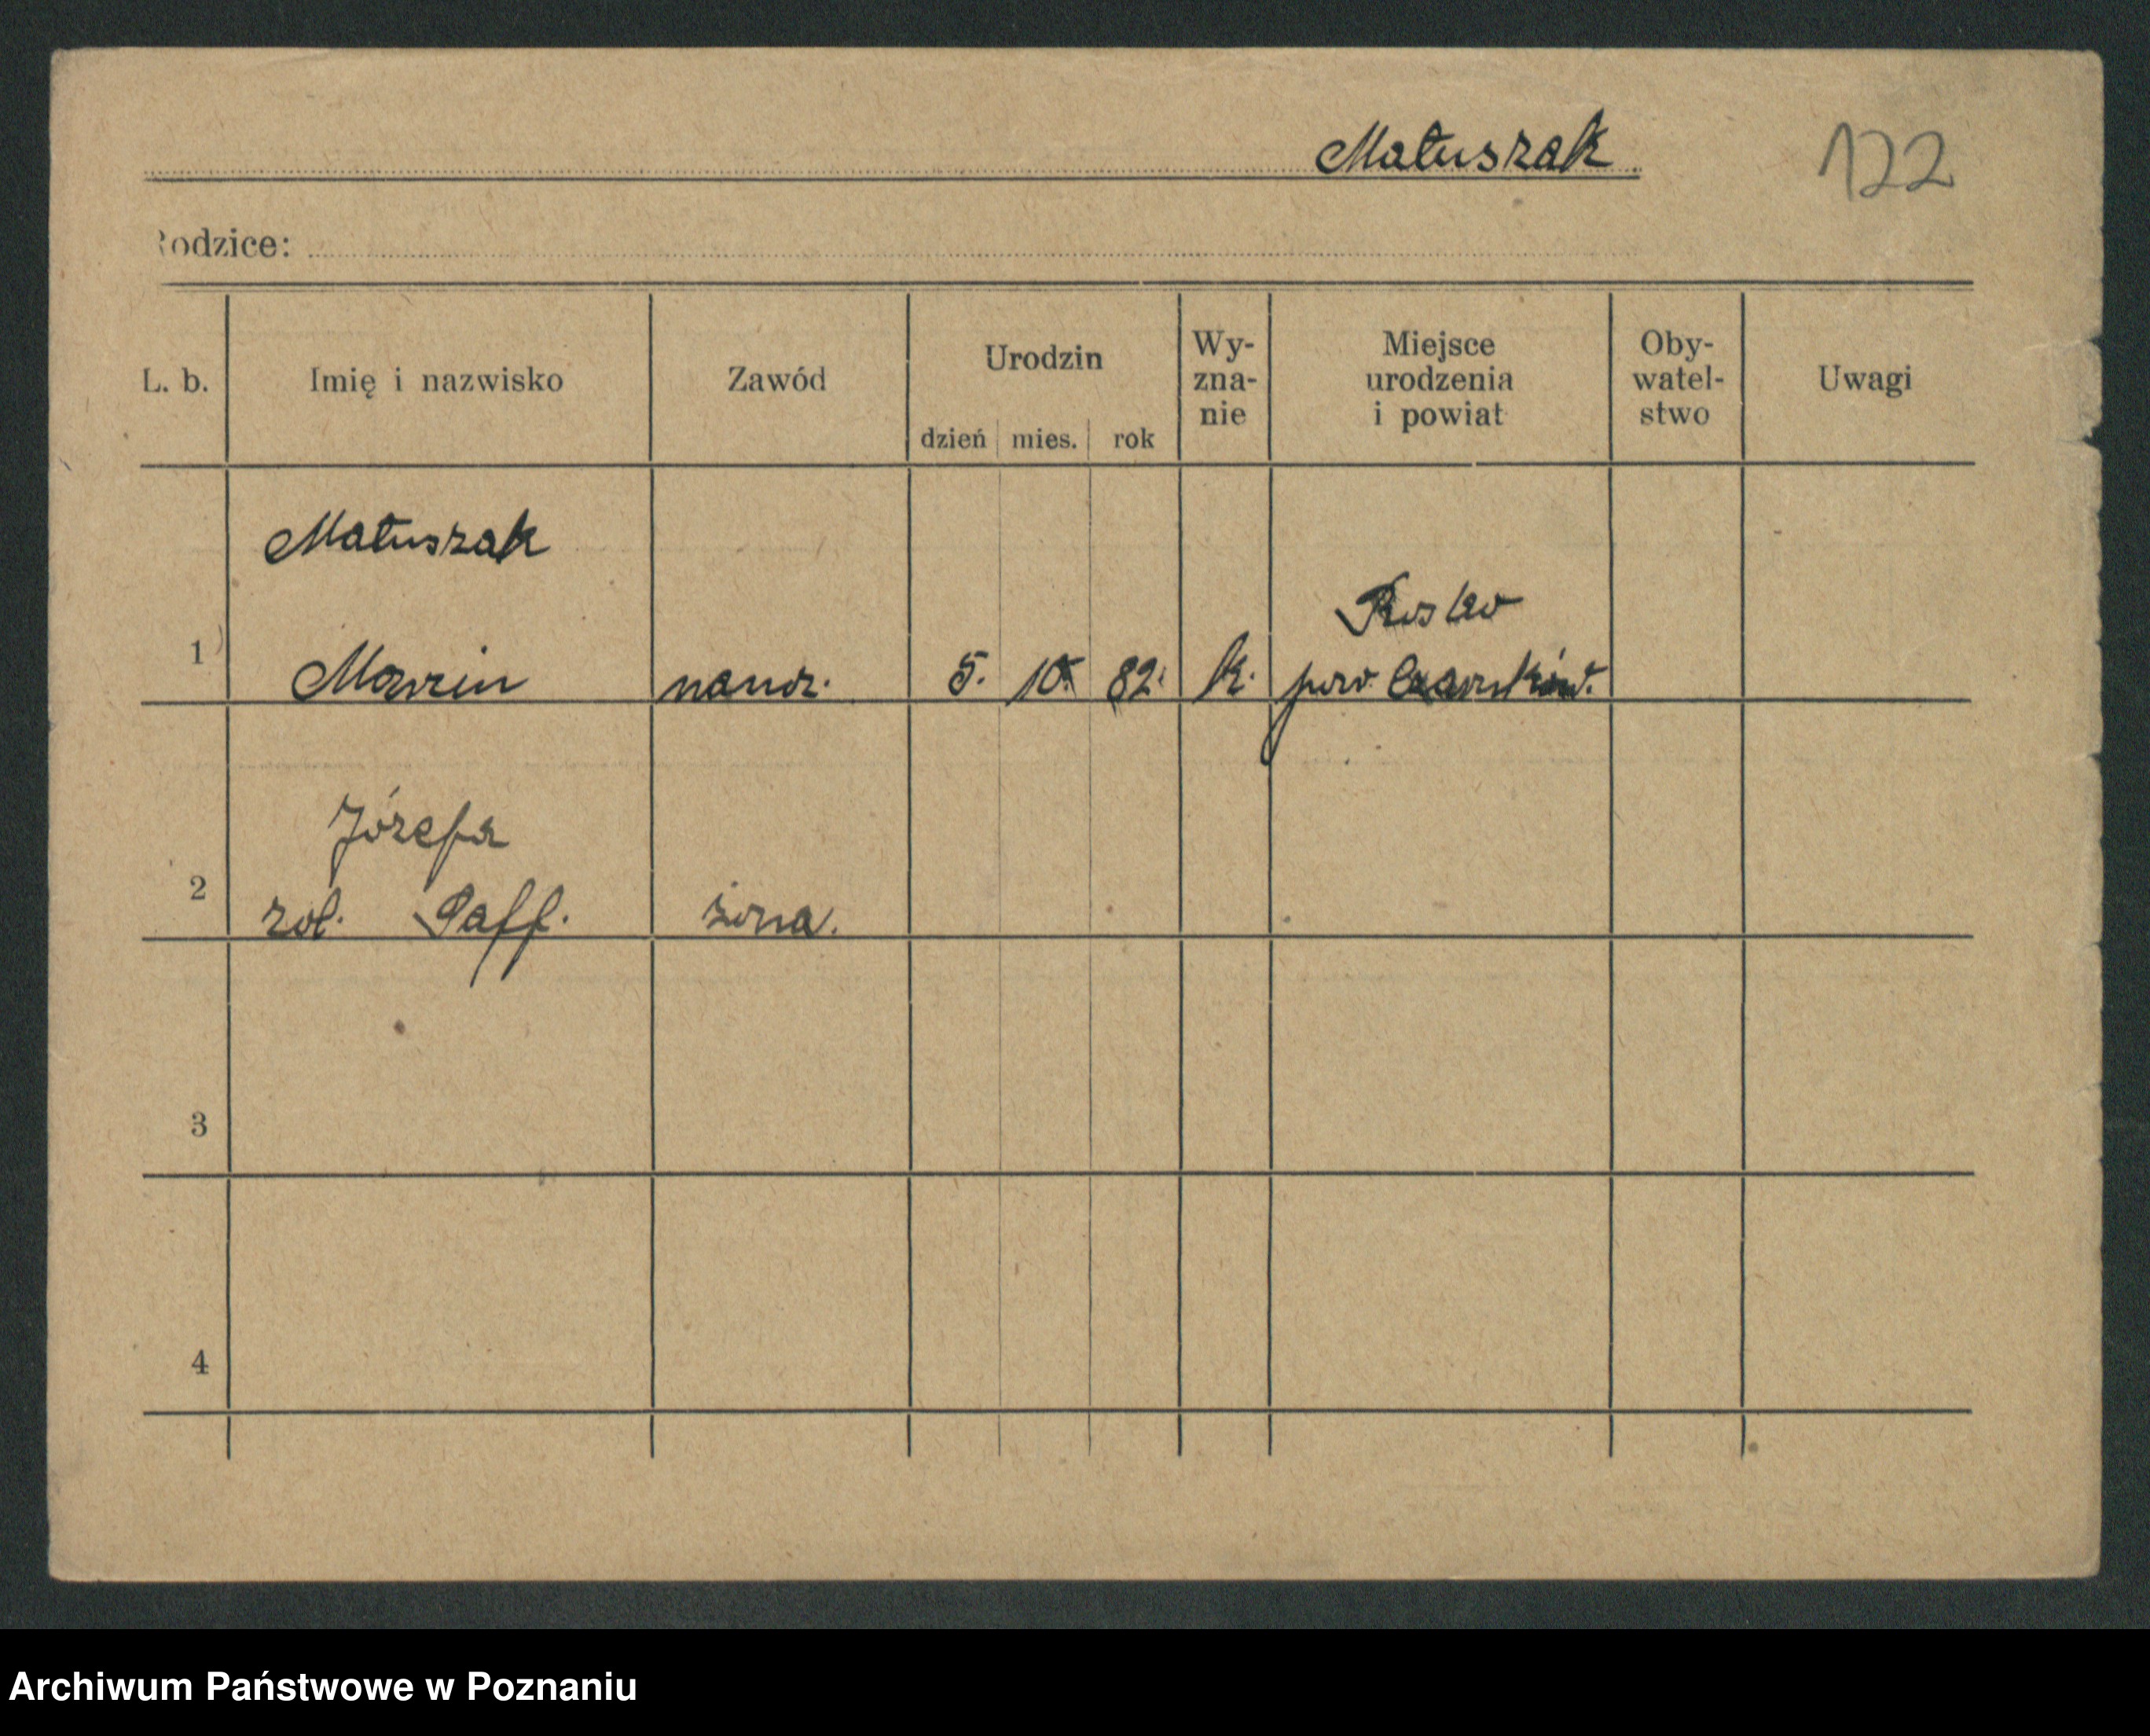 Matuszak
122
Rodzice:
L. b. Imię i nazwisko Zawód Urodzin dzień mies. rok Wy-zna-nie Miejsce urodzenia i powiat Oby-watel-stwo Uwagi
Matuszak
1 Marcin naucz. 5. 10. 82. k. Rosko
pow. Czarnków.
Józefa
2 żona.
3
4
Archiwum Państwowe w Poznaniu